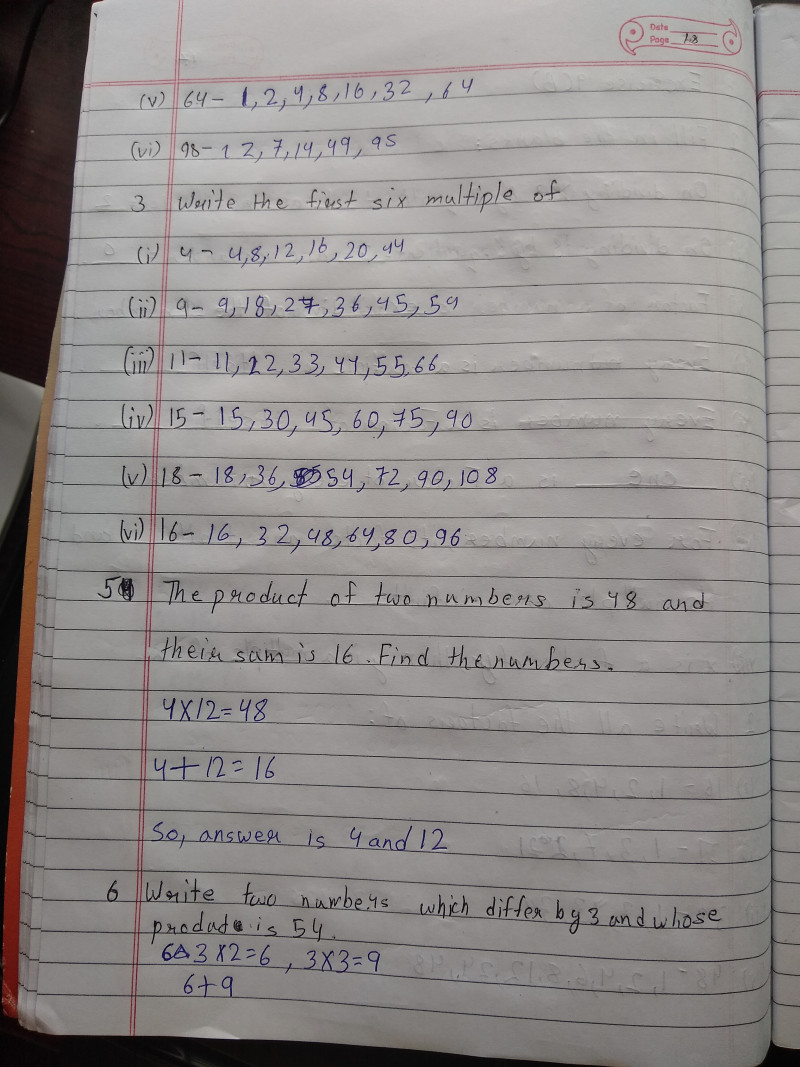 Date
Page 13
(v) 64 - 1, 2, 4, 8, 16, 32, 64
(vi) 98 - 1 2, 7, 14, 49, 95
3 Write the first six multiple of
(i) 4 - 4, 8, 12, 16, 20, 44
(ii) 9 - 9, 18, 27, 36, 45, 59
(iii) 11 - 11, 22, 33, 44, 55, 66
(iv) 15 - 15, 30, 45, 60, 75, 90
(v) 18 - 18, 36, 54, 72, 90, 108
(vi) 16 - 16, 32, 48, 64, 80, 96
5 The product of two numbers is 48 and
their sum is 16. Find the numbers.
4×12=48
4+12=16
So, answer is 4 and 12
6 Write two numbers which differ by 3 and whose
produt is 54.
3×2=6, 3×3=9
6+9